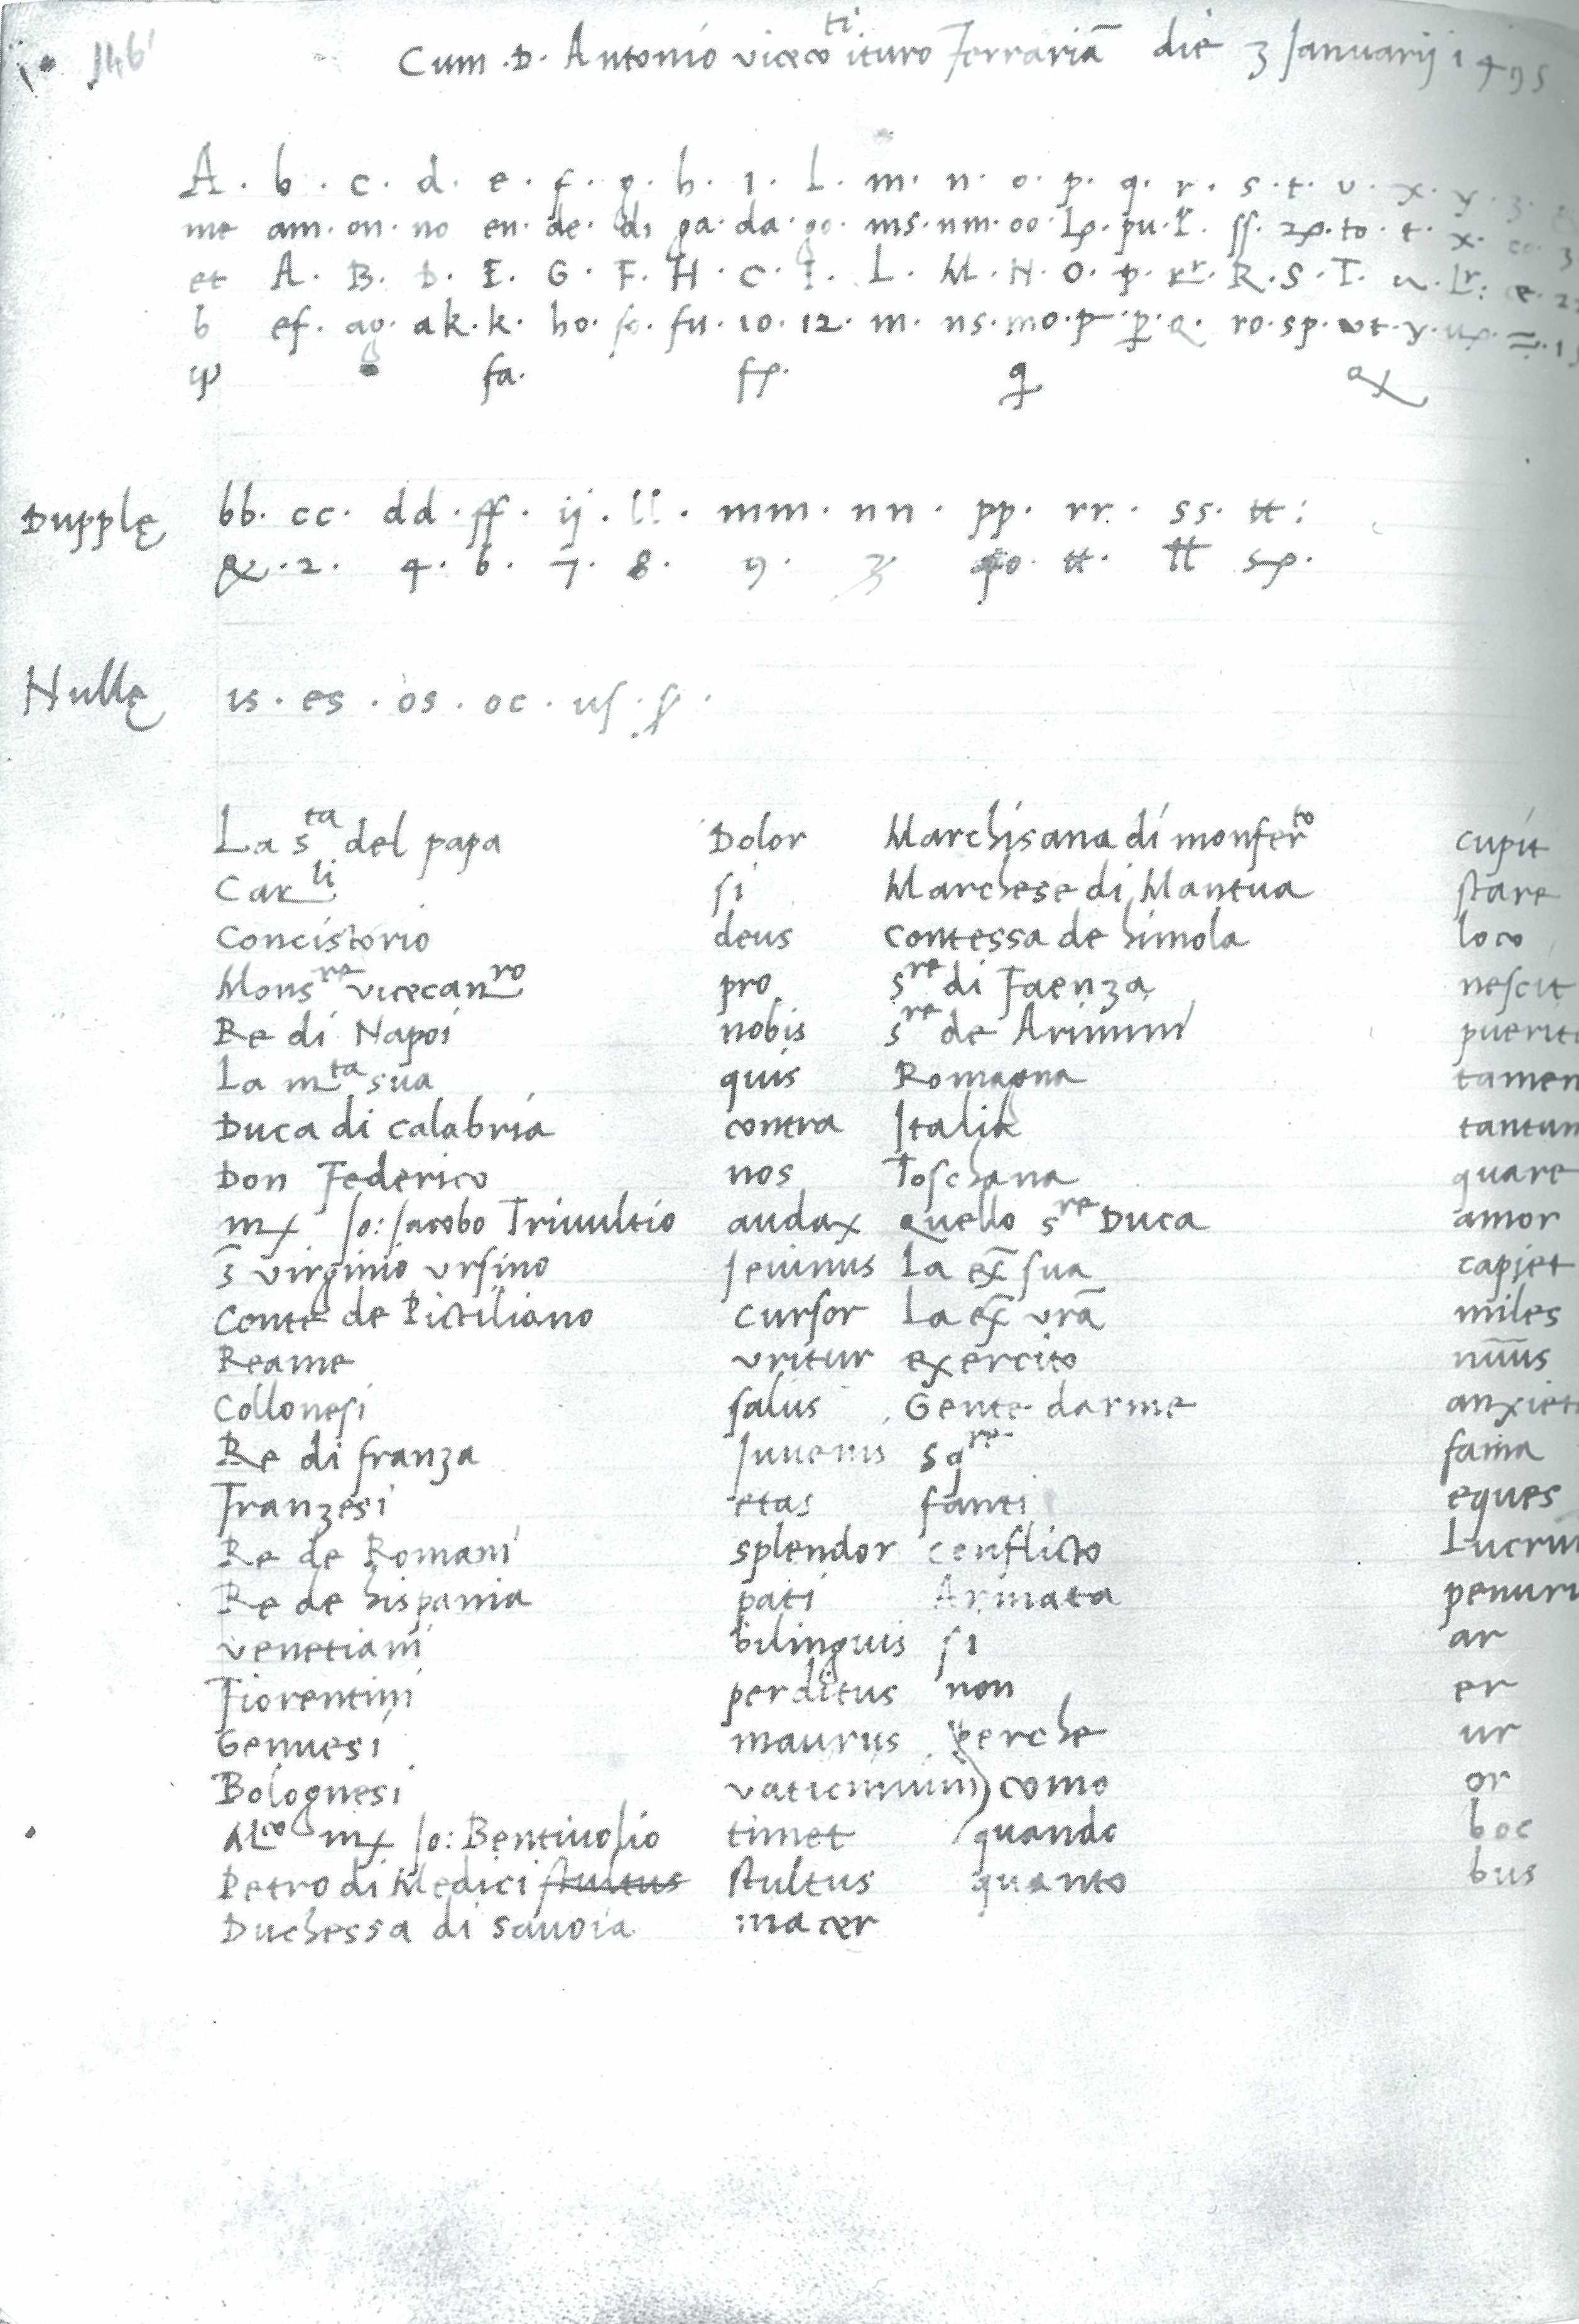 146
Cum . D . Antonio viceco^ti ituro Ferrariā die 3 Januarij 1495
A . b . c . d . e . f . g . h . i . L . m . n . o . p . q . r . s . t . v . x . y . 3 .
me am . on . no en . de . di ga . da . go . ms . nm . oo . Lp . pu . ſſ . to . t . x .
et A . B . D . E . G . F . H . C . I . L . M . N . O . p . R . S . T .
b ef . ag . ak . k . ho . fo . fu . 10 . 12 . m . ns . mo . p . ꝑ . Q . ro . sp . vt . y .
ψ fa . q
Dupplę bb . cc . dd . ff . ij . ll . mm . nn . pp . rr . ss . tt :
2 . 4 . 6 . 7 . 8 . 9 . 3 tt . tt
Nullę is . es . os . oc . uſ .
La s^ta del papa Dolor Marchisana di monfer^to cupit
Car^li ſi Marchese di Mantua stare
Concistorio deus contessa de himola loco
Mons^re vicecan^ro pro s^re di Faenza nescit
Re di Napoi nobis s^re de Arimini
La m^ta sua quis Romagna tamen
Duca di calabria contra Italia
Don Federico nos Toschana quare
mx Jo: Jacobo Triuultio audax quello s^re Duca amor
s̄ virginio vrsino Jeiunus La ex̄ sua capiet
Conte de Pictiliano cursor La ex̄ vrā miles
Reame vritur exercito
Collonesi salus Gente darme
Re di franza Juuenis sq^re fama
Franzesi etas fanti eques
Re de Romani splendor conflicto
Re de hispania pati Armata
venetiani bilinguis si ar
Fiorentini perditus non er
Genuesi maurus perche ur
Bolognesi vaticinium como or
M^co mx Jo: Bentiuolio timet quando hoc
Petro di Medici stultus stultus quanto bus
Duchessa di sauoia macer